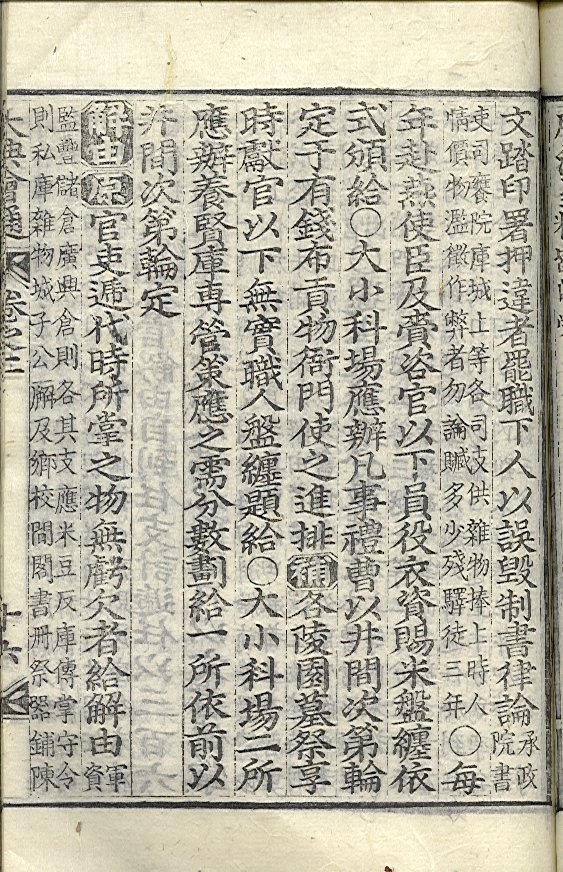 文踏印署押違者罷職下人以誤毁制書律論承政院書
吏司饔院庫城上等各司支供雜物捧上時人
情價物濫徵作弊者勿論贓多少殘驛徒三年〇每
年赴燕使臣及賫咨官以下員役衣資賜米盤纏依
式頒給〇大小科塲應辦凡事禮曹以井間次第輪
定于有錢布貢物衙門使之進排補各陵園墓祭享
時獻官以下無實職人盤纏題給〇大小科場二所
應辦養賢庫專管策應之需分數劃給一所依前以
井間次第輪定
解由原官吏遞代時所掌之物無虧欠者給解由軍資
監豐儲倉廣興倉則各其支應米豆反庫傳掌守令
則私庫雜物城子公廨及鄕校間閣書冊祭器鋪陳
大典會通 卷之二 十六